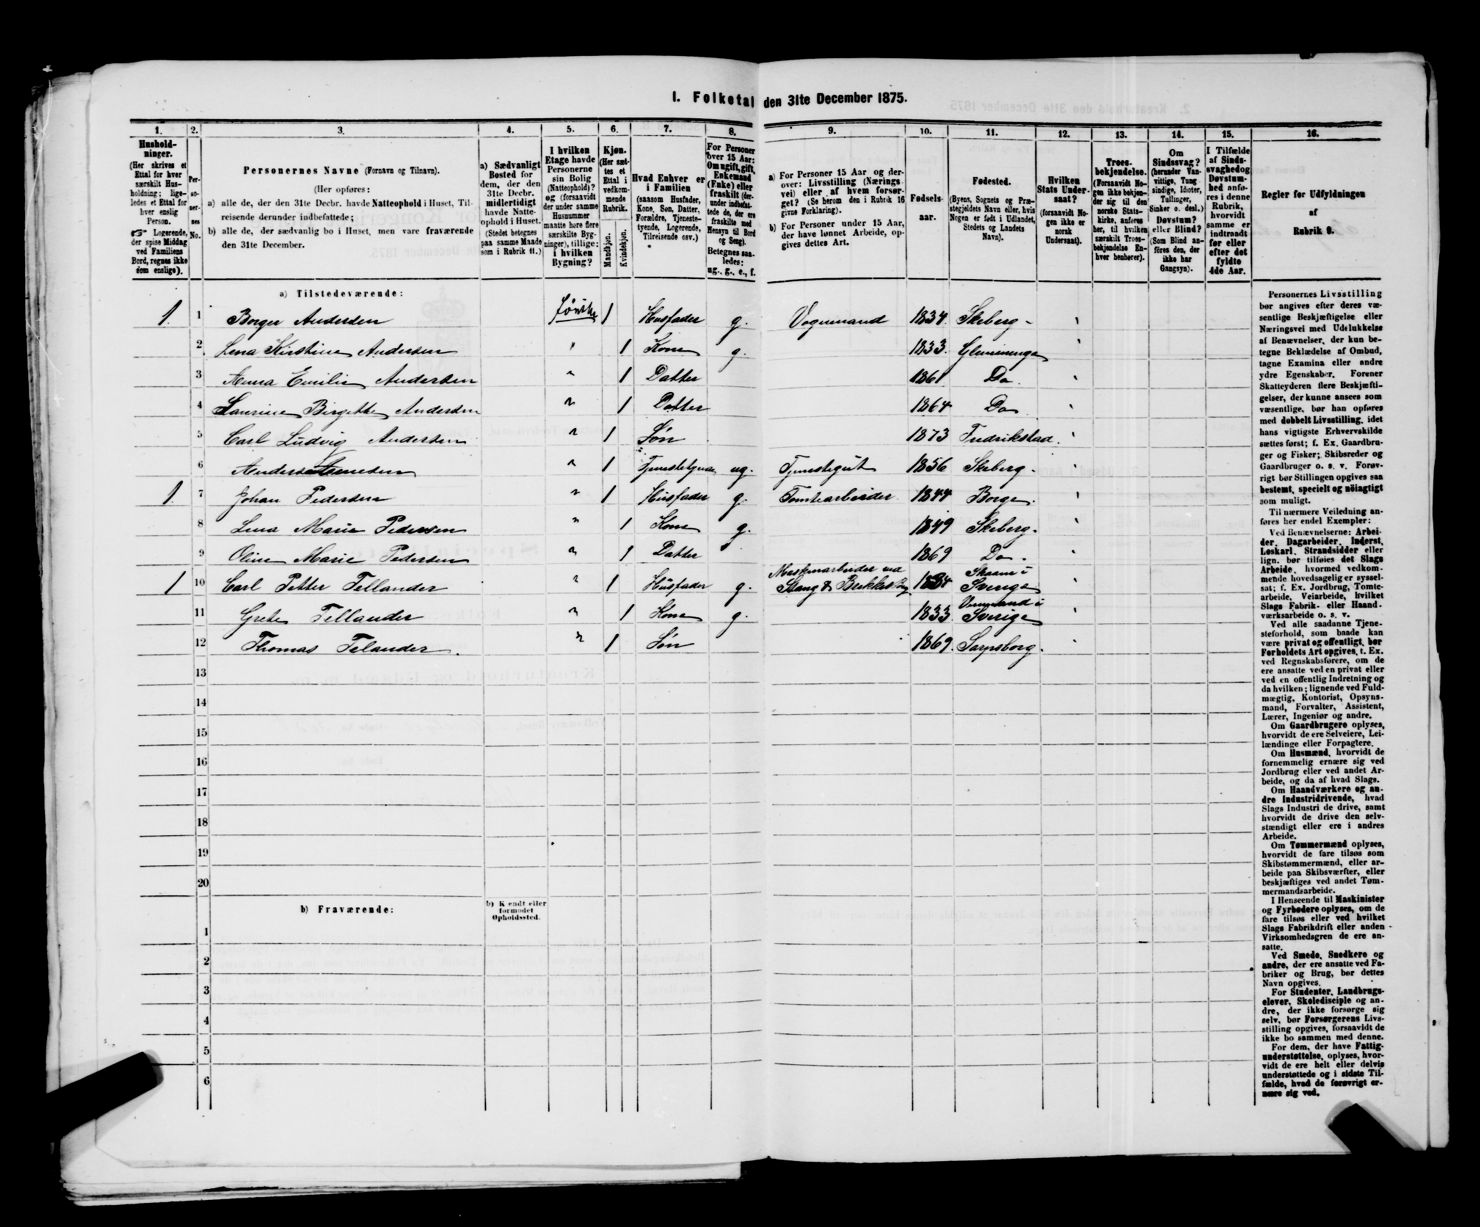 I. Folketal den 31te December 1875.
1. 2. 3. 4. 5. 6. 7. 8. 9. 10. 11. 12. 13. 14. 15. 16.
Husholdninger.
(Her skrives et
Ettal for hver
særskilt Husholdning;
ligeledes et Ettal for
hver enslig
Person.
Logerende,
der spise Middag
ved Familiens
Bord, regnes ikke
som enslige).
Personernes No.
Personernes Navne (Fornavn og Tilnavn).
(Her opføres:
a) alle de, der den 31te Decbr. havde Natteophold i Huset, Tilreisende
derunder indbefattede;
b) alle de, der sædvanlig bo i Huset, men vare fraværende
den 31te December.
a) Sædvanligt
Bosted for
dem, der den
31te Decbr.
midlertidigt
havde Natteophold
i Huset.
(Stedet betegnes
paa samme Maade
som i Rubrik 11.)
I hvilken
Etage havde
Personerne
sin Bolig
(Natteophold)?
og (forsaavidt
der under samme
Husnummer
maatte høre flere
særskilte Bygninger),
tillige:
i hvilken
Bygning?
Kjøn.
(Her sættes et
Ettal i
vedkommende
Rubrik.
Mandkjøn.
Kvindekjøn.
Hvad Enhver er
i Familien
(saasom Husfader,
Kone, Søn, Datter,
Forældre, Tjenestetyende,
Logerende,
Tilreisende osv.)
For Personer
over 15 Aar:
Om ugift, gift,
Enkemand
(Enke) eller
fraskilt (derunder
indbefattede
de, der ere
fraskilte med
Hensyn til Bord
og Seng).
Betegnes saaledes:
ug., g., e., f.
a) For Personer 15 Aar og derover:
Livsstilling (Næringsvei)
eller af hvem forsørget?
(Se herom den i Rubrik 16
givne Forklaring).
b) For Personer under 15 Aar,
der have lønnet Arbeide, opgives
dettes Art.
Fødselsaar.
Fødested.
(Byens, Sognets og Præstegjeldets
Navn eller, hvis
Nogen er født i Udlandet,
Stedets og Landets
Navn).
Hvilken
Stats Undersaat?
(forsaavidt Nogen
ikke er
norsk
Undersaat).
Troesbekjendelse.
(Forsaavidt Nogen
ikke bekjender
sig til den
norske Statskirke,
anføres
her, til hvilken
særskilt Troesbekjendelse
Enhver
henhører).
Om
Sindssvag?
(herunder Vanvittige,
Tungsindige,
Idioter,
Tullinger,
Sinker o. desl.)
Døvstum?
eller Blind?
(Som Blind anføres
den, der
ikke har
Gangsyn).
I Tilfælde
af Sindssvaghed
og
Døvstumhed
anføres
i denne
Rubrik,
hvorvidt
samme er
indtraadt
før eller
efter det
fyldte
4de Aar.
Regler for Udfyldningen
af
Rubrik 9.
a) Tilstedeværende:
1 1 Borger Andersen 1 Husfader g. Vognmand 1834. Skeberg
2 Lena Kirstine Andersen " 1 Kone g. 1833. Glemminge
3 Anna Emilie Andersen " 1 Datter 1861 Do
4 Laurine Birgitte Andersen " 1 Datter 1864 Do
5 Carl Ludvig Andersen " 1 Søn 1873 Fredrikstad.
6 " 1 ug. Tjenestegut 1856 Skeberg
1 7 Johan Pedersen " 1 Husfader g. Tomtearbeider 1844 Borge
8 Lena Marie Pedersen " 1 Kone g. 1849 Skeberg
9 Oline Marie Pedersen " 1 Datter 1869 Do
1 10 Carl Petter Tellander " 1 Husfader g. Sverige
11 Grete Tellander " 1 Kone g. 1833 Sverige
12 Thomas Telander " 1 Søn 1869. Sarpsborg
13
14
15
16
17
18
19
20
b) Fraværende:
formodet
Opholdssted.
1
2
3
4
5
6
Personernes Livsstilling
bør angives efter deres væsentlige
Beskjæftigelse eller
Næringsvei med Udelukkelse
af Benævnelser, der kun betegne
Beklædelse af Ombud,
tagne Examina eller andre
ydre Egenskaber. Forener
Skatteyderen flere Beskjæftigelser,
der kunne ansees som
væsentlige, bør han opføres
med dobbelt Livsstilling, idet
hans vigtigste Erhvervskilde
sættes først; f. Ex. Gaardbruger
og Fisker; Skibsreder og
Gaardbruger o. s. v. Forøvrigt
bør Stillingen opgives saa
bestemt, specielt og nøiagtigt
som muligt.
Til nærmere Veiledning anføres
her endel Exempler:
Ved Benævnelserne: Arbeider,
Dagarbeider, Inderst,
Løskarl, Strandsidder eller
lign. bør tilføies det Slags
Arbeide, hvormed vedkommende
hovedsagelig er sysselsat;
f. Ex. Jordbrug, Tomtearbeide,
Veiarbeide, hvilket
Slags Fabrik- eller Haandværksarbeide
o. s. v.
Ved alle saadanne Tjenesteforhold,
som baade kan
være privat og offentligt, bør
Forholdets Art opgives, t. Ex.
ved Regnskabsførere, om de
ere ansatte ved en privat eller
ved en offentlig Indretning og
da hvilken; lignende ved Fuldmægtig,
Kontorist, Opsynsmand,
Forvalter, Assistent,
Lærer, Ingeniør og andre.
Om Gaardbrugere oplyses,
hvorvidt de ere Selveiere, Leilændinge
eller Forpagtere.
Om Husmænd, hvorvidt de
fornemmelig ernære sig ved
Jordbrug eller ved andet Arbeide,
og da af hvad Slags.
Om Haandværkere og andre
Industridrivende, hvad
Slags Industri de drive, samt
hvorvidt de drive den selvstændigt
eller ere i andres
Arbeide.
Om Tømmermænd oplyses,
hvorvidt de fare tilsøs som
Skibstømmermænd, eller arbeide
paa Skibsværfter, eller
beskjæftiges ved andet Tømmermandsarbeide.
I Henseende til Maskinister
og Fyrbødere oplyses, om de
fare tilsøs eller ved hvilket
Slags Fabrikdrift eller anden
Virksomhedsgren de ere ansatte.
Ved Smede, Snedkere og
andre, der ere ansatte ved Fabriker
og Brug, bør dettes
Navn opgives.
For Studenter, Landbrugselever,
Skoledisciple og andre,
der ikke forsørge sig
selv, bør Forsørgerens Livsstilling
opgives, forsaavidt de
ikke bo sammen med denne.
For dem, der have Fattigunderstøttelse,
oplyses, hvorvidt
de ere helt eller delvis
understøttede og i sidste Tilfælde,
hvad de forøvrigt ernære
sig ved.